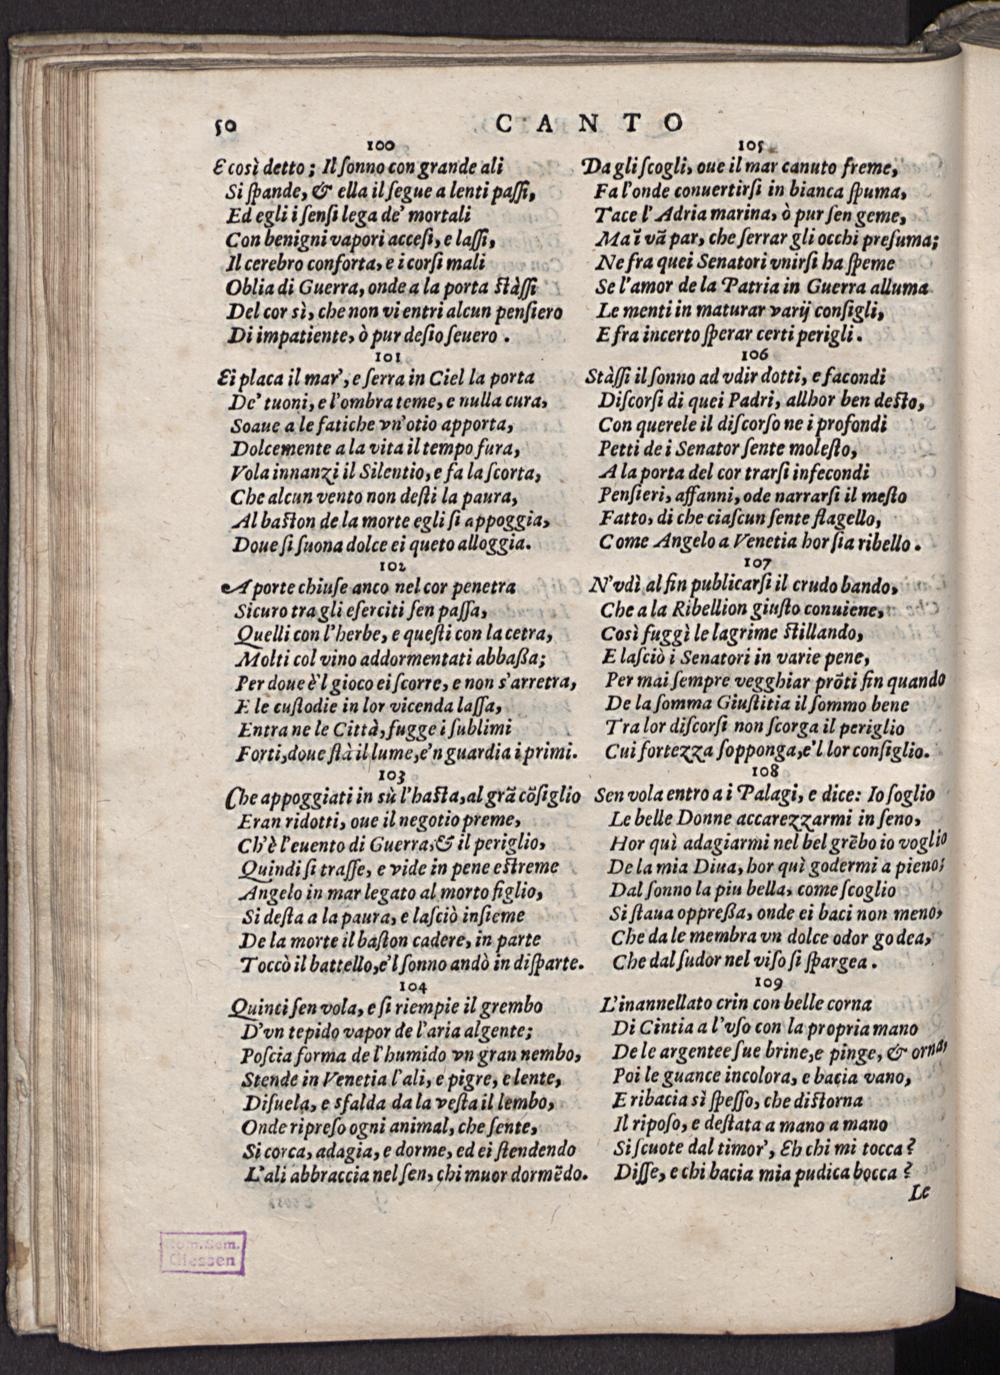 50
CANTO
100
E così detto; Il ſonno con grande ali
Si ſpande, & ella il ſegue a lenti paſſi,
Ed egli i ſenſi lega de' mortali
Con benigni vapori acceſi, e laſſi,
Il cerebro conforta, e i corſi mali
Oblia di Guerra, onde a la porta ſtàſſi
Del cor sì, che non vi entri alcun penſiero
Di impatiente, ò pur deſio ſeuero.
101
Ei placa il mar', e ſerra in Ciel la porta
De' tuoni, e l'ombra teme, e nulla cura,
Soaue a le fatiche vn'otio apporta,
Dolcemente a la vita il tempo fura,
Vola innanzi il Silentio, e fa la ſcorta,
Che alcun vento non deſti la paura,
Al baſton de la morte egli ſi appoggia,
Doue ſi ſuona dolce ei queto alloggia.
102
A porte chiuſe anco nel cor penetra
Sicuro tra gli eſerciti ſen paſſa,
Quelli con l'herbe, e queſti con la cetra,
Molti col vino addormentati abbaßa;
Per doue è'l gioco ei ſcorre, e non s'arretra,
E le cuſtodie in lor vicenda laſſa,
Entra ne le Città, fugge i ſublimi
Forti, doue ſtà il lume, e'n guardia i primi.
103
Che appoggiati in sù l'haſta, al grã cõſiglio
Eran ridotti, oue il negotio preme,
Ch'è l'euento di Guerra, & il periglio,
Quindi ſi traſſe, e vide in pene eſtreme
Angelo in mar legato al morto figlio,
Si deſta a la paura, e laſciò inſieme
De la morte il baſton cadere, in parte
Toccò il battello, e'l ſonno andò in diſparte.
104
Quinci ſen vola, e ſi riempie il grembo
D'vn tepido vapor de l'aria algente;
Poſcia forma de l'humido vn gran nembo,
Stende in Venetia l'ali, e pigre, e lente,
Diſuela, e sfalda da la veſta il lembo,
Onde ripreſo ogni animal, che ſente,
Si corca, adagia, e dorme, ed ei ſtendendo
L'ali abbraccia nel ſen, chi muor dormẽdo.
105
Da gli ſcogli, oue il mar canuto freme,
Fa l'onde conuertirſi in bianca ſpuma,
Tace l'Adria marina, ò pur ſen geme,
Ma ĩ vã par, che ſerrar gli occhi preſuma;
Ne fra quei Senatori vnirſi ha ſpeme
Se l'amor de la Patria in Guerra alluma
Le menti in maturar varij conſigli,
E fra incerto ſperar certi perigli.
106
Stàſſi il ſonno ad vdir dotti, e facondi
Diſcorſi di quei Padri, allhor ben deſto,
Con querele il diſcorſo ne i profondi
Petti de i Senator ſente moleſto,
A la porta del cor trarſi infecondi
Penſieri, affanni, ode narrarſi il meſto
Fatto, di che ciaſcun ſente flagello,
Come Angelo a Venetia hor ſia ribello.
107
N'vdì al fin publicarſi il crudo bando,
Che a la Ribellion giuſto conuiene,
Così fuggì le lagrime ſtillando,
E laſciò i Senatori in varie pene,
Per mai ſempre vegghiar prõti fin quando
De la ſomma Giuſtitia il ſommo bene
Tra lor diſcorſi non ſcorga il periglio
Cui fortezza ſopponga, e'l lor conſiglio.
108
Sen vola entro a i Palagi, e dice: Io ſoglio
Le belle Donne accarezzarmi in ſeno,
Hor quì adagiarmi nel bel grẽbo io voglio
De la mia Diua, hor quì godermi a pieno;
Dal ſonno la piu bella, come ſcoglio
Si ſtaua oppreßa, onde ei baci non meno,
Che da le membra vn dolce odor godea,
Che dal ſudor nel viſo ſi ſpargea.
109
L'inannellato crin con belle corna
Di Cintia a l'vſo con la propria mano
De le argentee ſue brine, e pinge, & orna,
Poi le guance incolora, e bacia vano,
E ribacia sì ſpeſſo, che diſtorna
Il ripoſo, e deſtata a mano a mano
Si ſcuote dal timor', Eh chi mi tocca?
Diſſe, e chi bacia mia pudica bocca?
Le
Rom. Sem.
Giessen